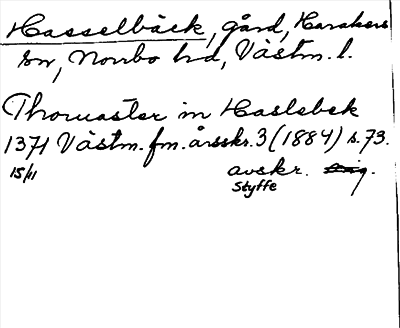 Hasselbäck, gård, Harakers
sn, Norrbo hd, Västm. l.
Thomaster in Haslebek
1371 Västm. fm. årsskr. 3 (1884) s. 73.
15/11 avskr. Orig.
Styffe